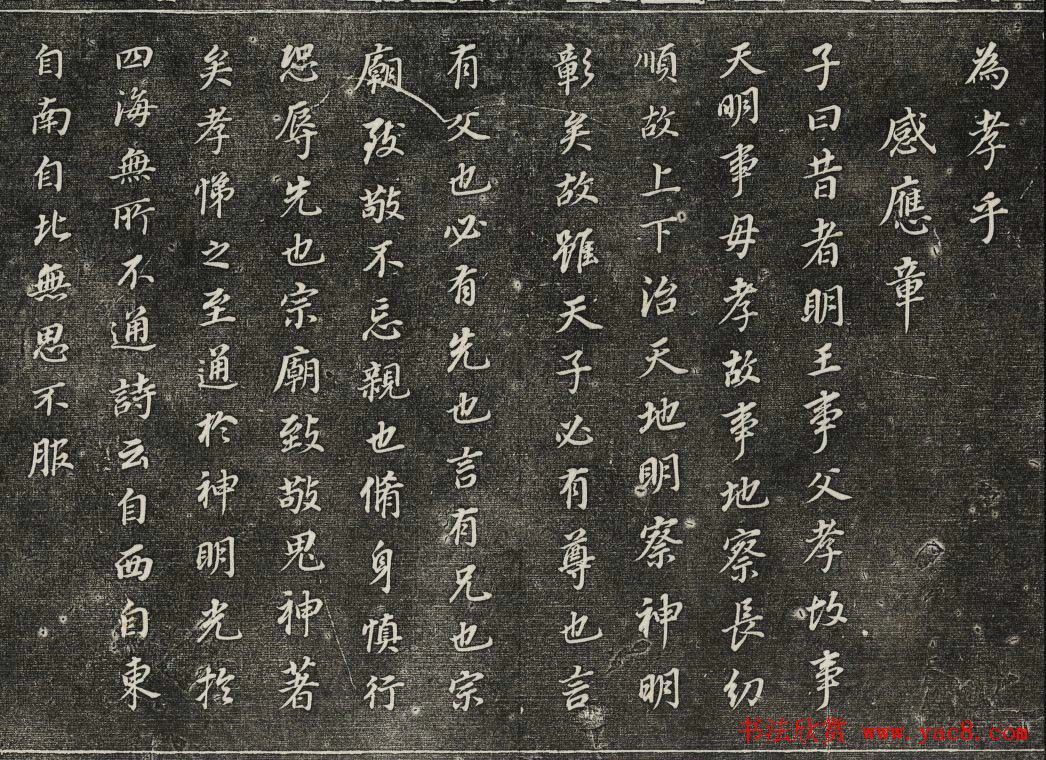 為孝乎
感應章
子曰昔者明王事父孝故事
天明事母孝故事地察長幼
順故上下治天地明察神明
彰矣故雖天子必有尊也言
有父也必有先也言有兄也宗
廟致敬不忘親也脩身慎行
恐辱先也宗廟致敬鬼神著
矣孝悌之至通於神明光於
四海無所不通詩云自西自東
自南自北無思不服
书法欣赏 www.yac8.com